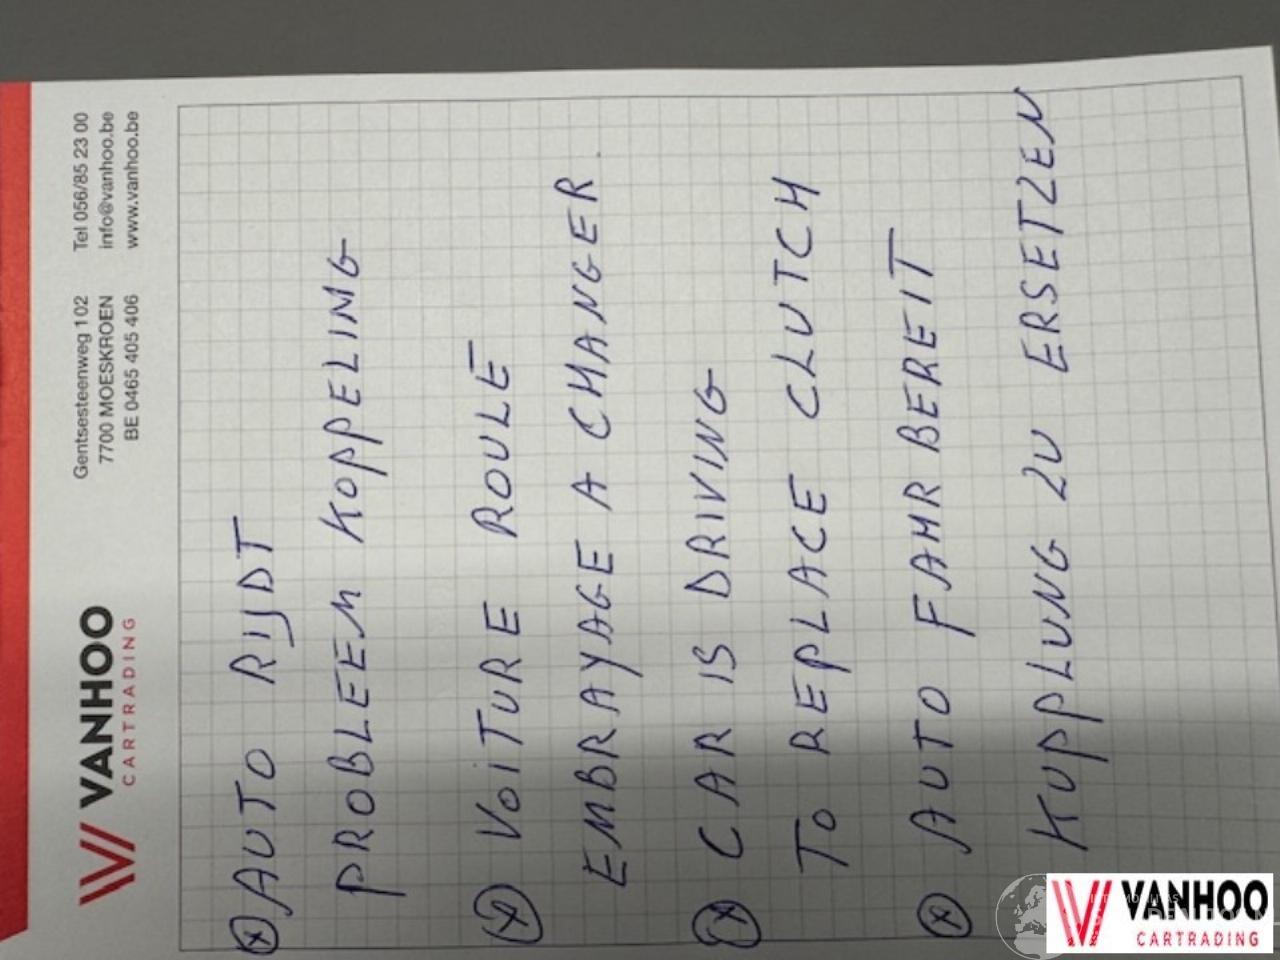 VANHOO
CARTRADING
Gentsesteenweg 102
7700 MOESKROEN
BE 0465 405 406
Tel 056/85 23 00
info@vanhoo.be
www.vanhoo.be
AUTO RIJDT
PROBLEEM KOPPELING
VOITURE ROULE
EMBRAYAGE A CHANGER
CAR IS DRIVING
TO REPLACE CLUTCH
AUTO FAHRBEREIT
KUPPLUNG ZU ERSETZEN
VANHOO
CARTRADING